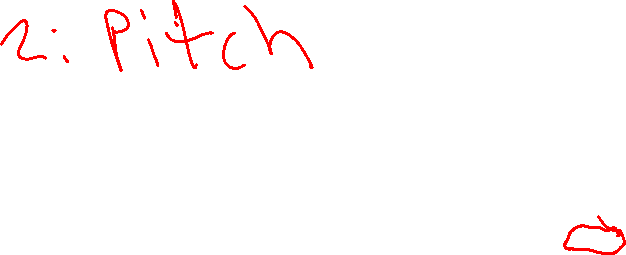 2: Pitch